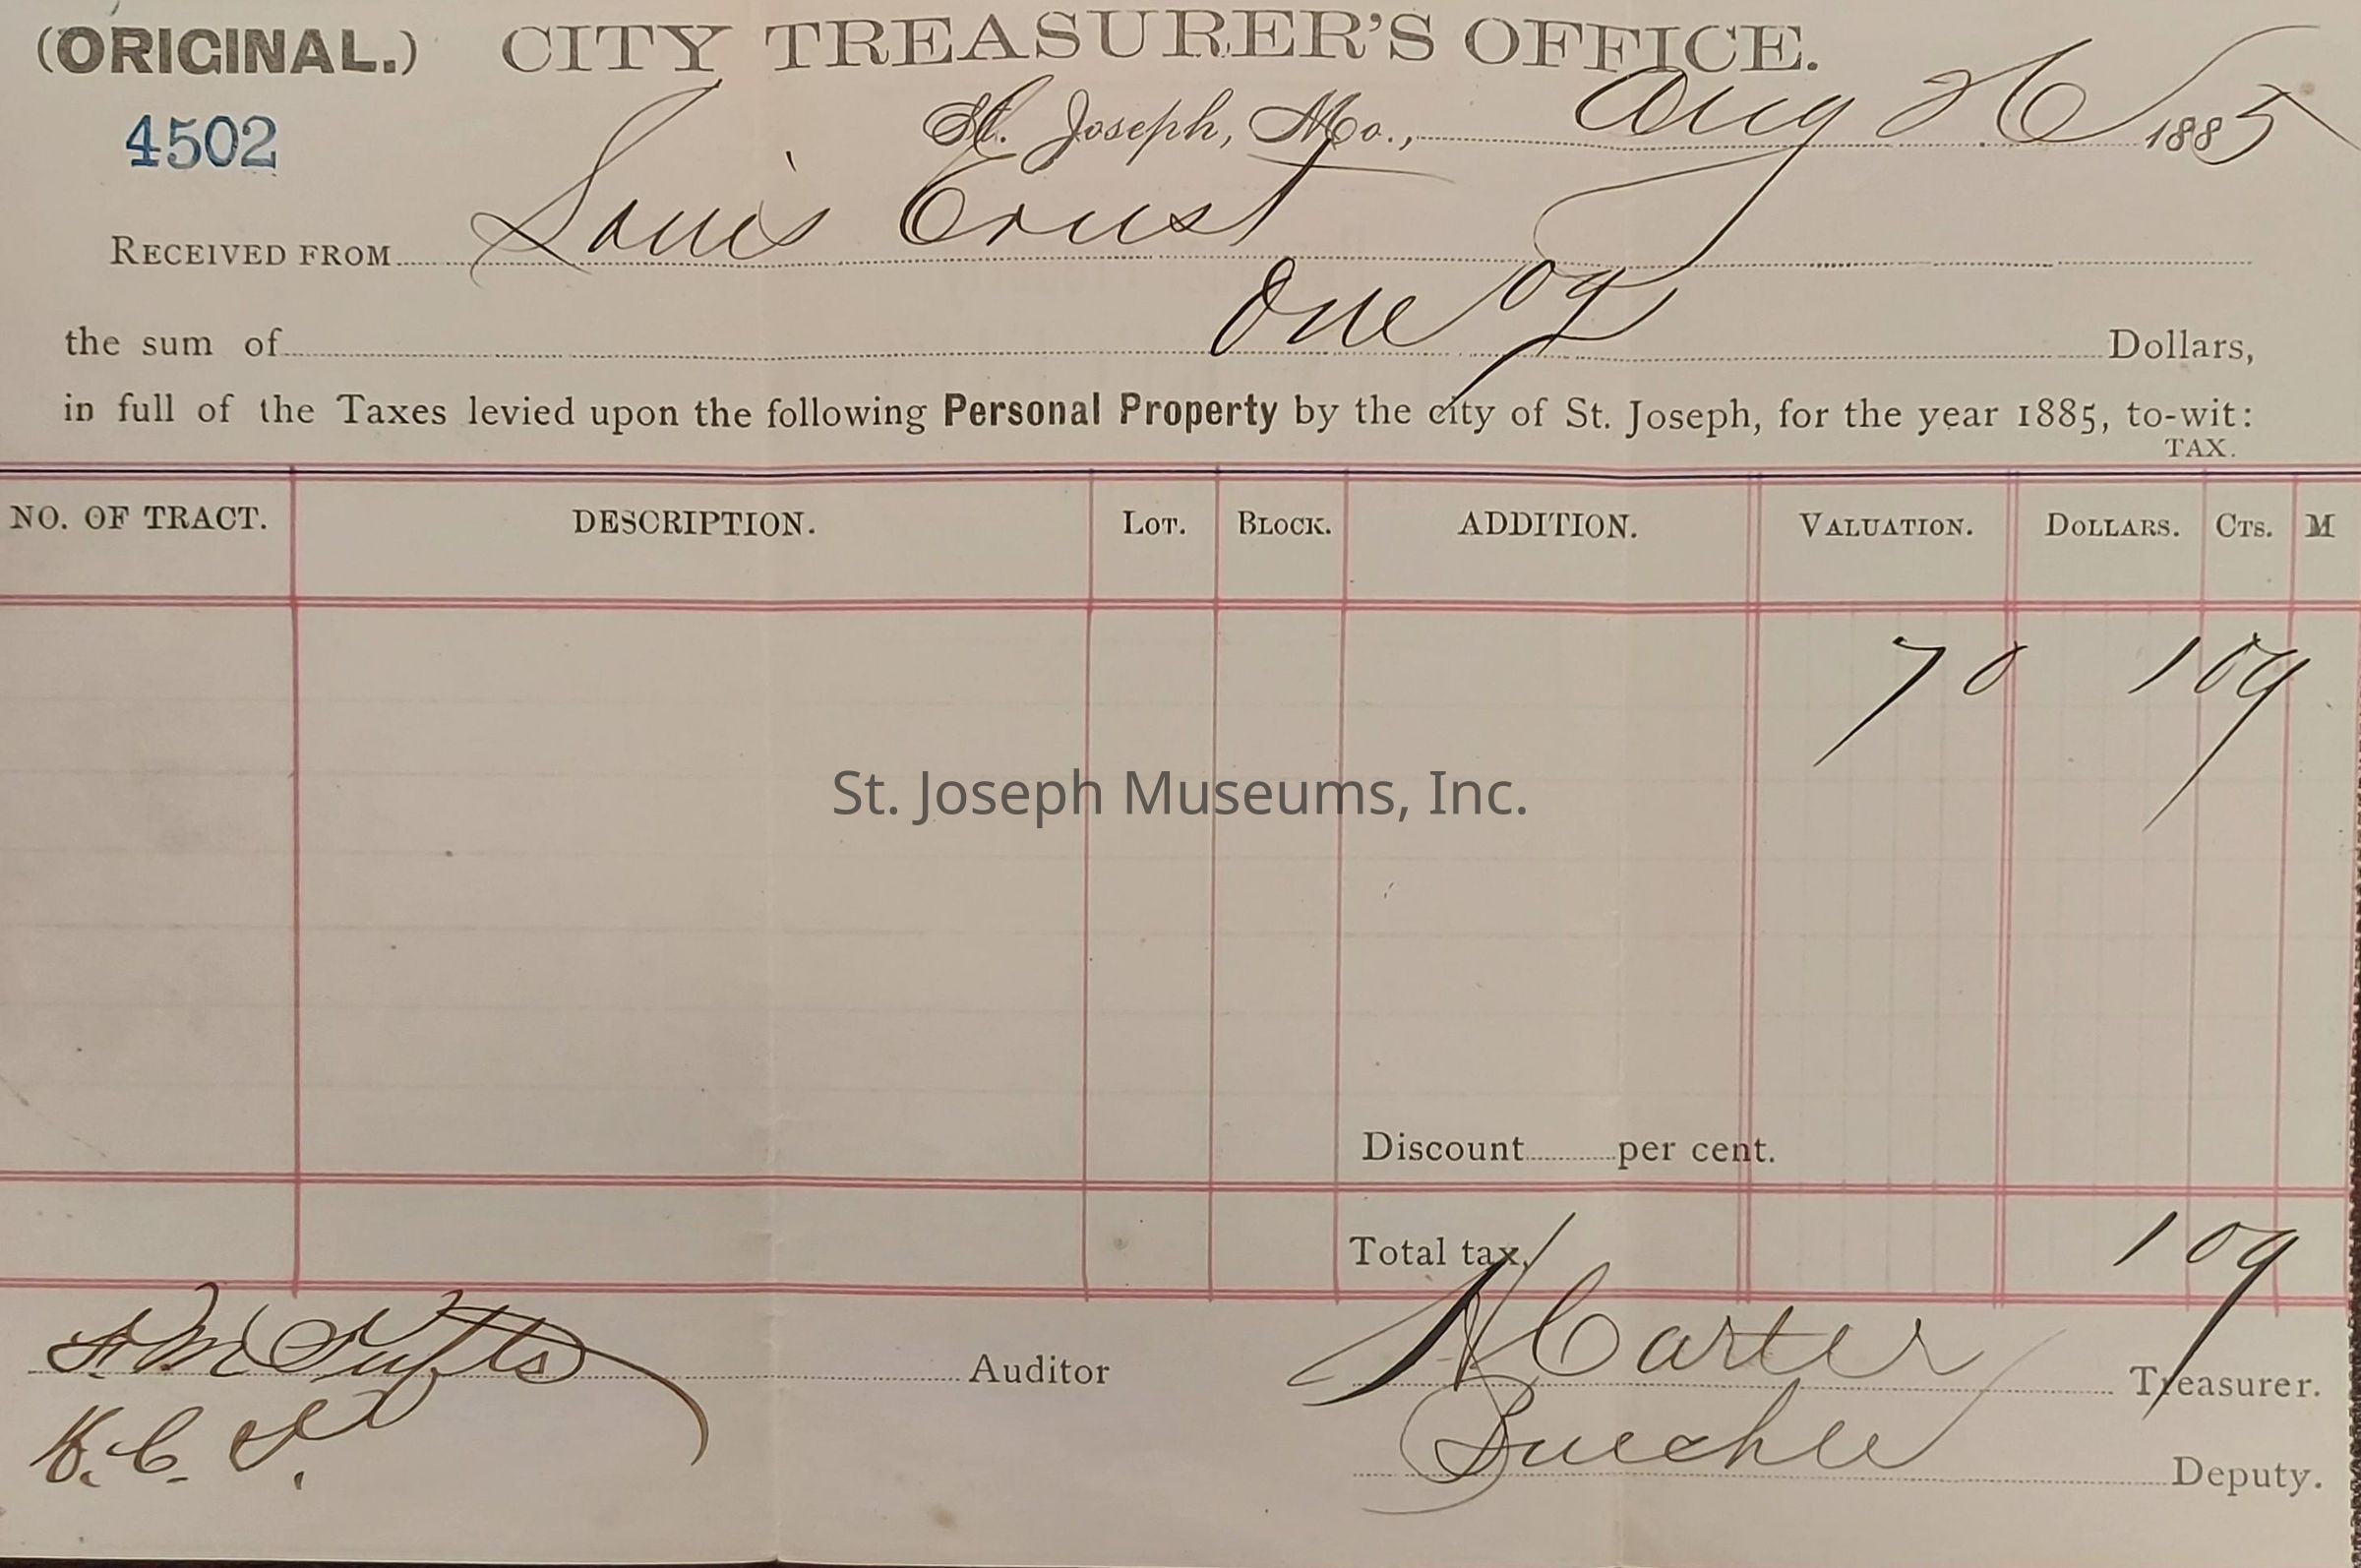 (ORIGINAL.) CITY TREASURER'S OFFICE.
4502
St. Joseph, Mo., Aug 26 1885
RECEIVED FROM Louis Ernst
the sum of One 09 Dollars,
in full of the Taxes levied upon the following Personal Property by the city of St. Joseph, for the year 1885, to-wit:
TAX.
NO. OF TRACT. DESCRIPTION. LOT. BLOCK. ADDITION. VALUATION. DOLLARS. CTS. M
70 1 09
St. Joseph Museums, Inc.
Discount per cent.
Total tax, 1 09
Tufts Auditor
Carter Treasurer.
Buechle Deputy.